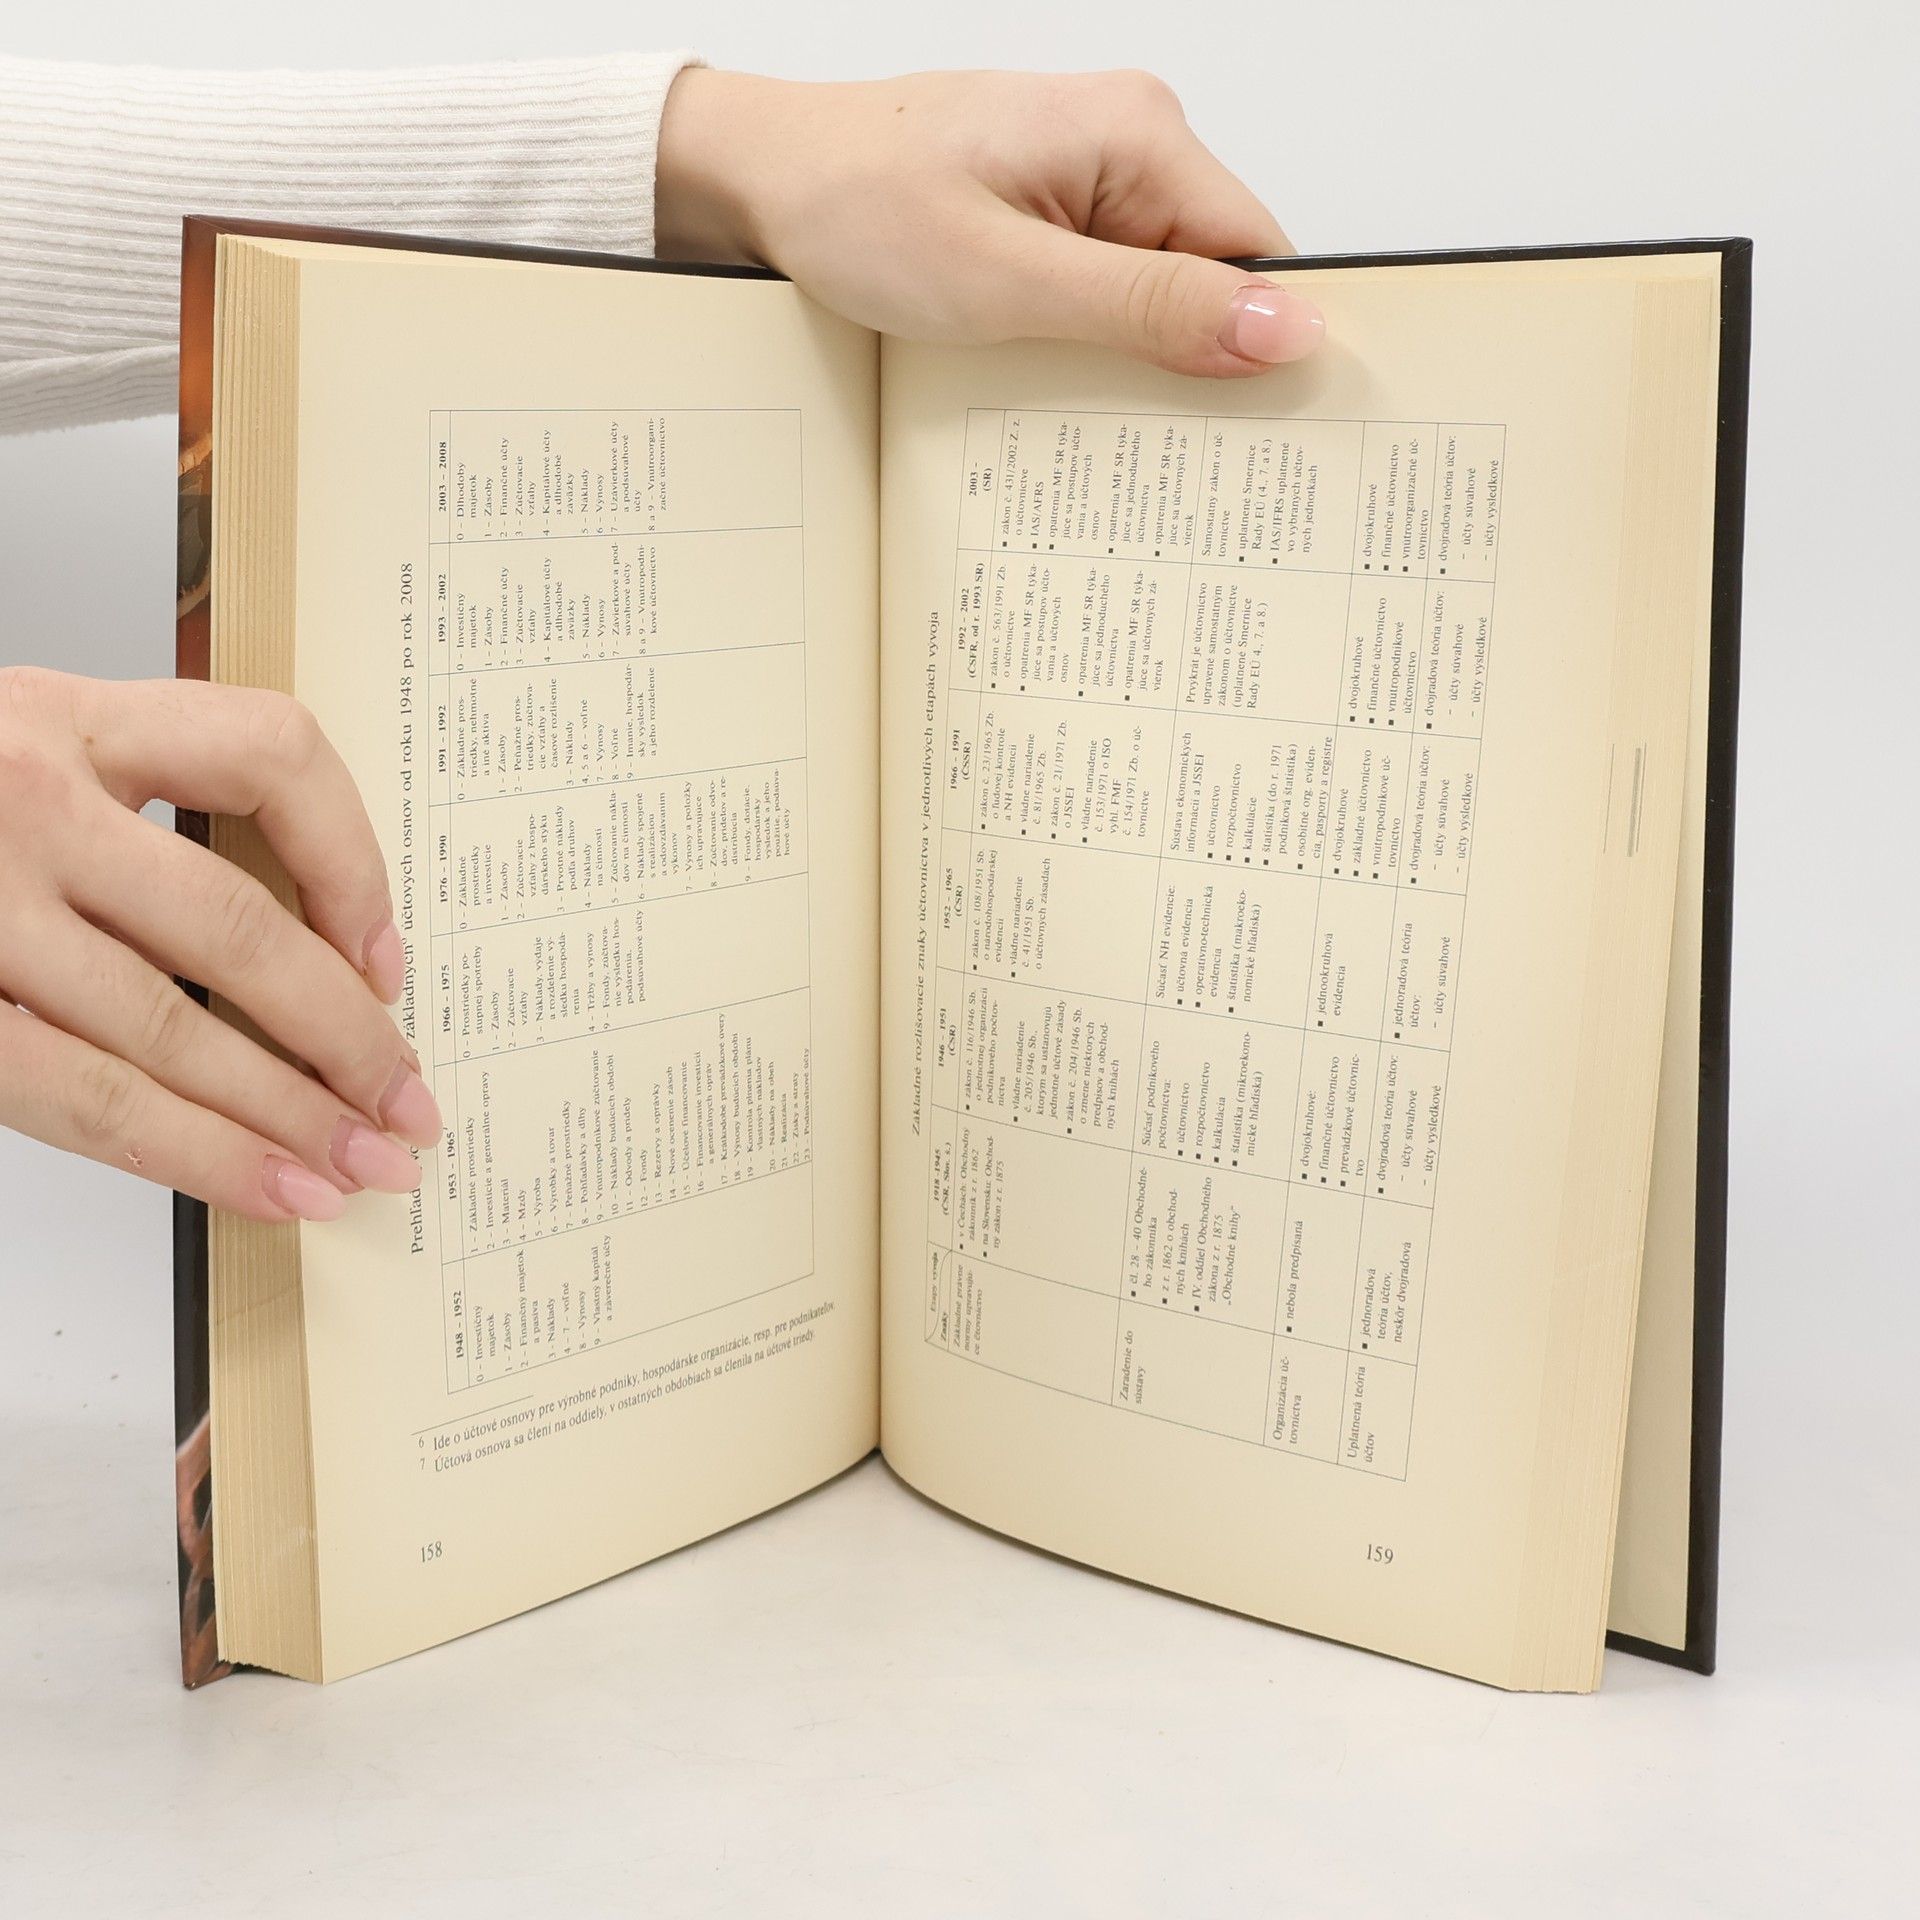 Prehľad základných⁶ účtových osnov od roku 1948 po rok 2008
1948 – 1952
0 – Investičný
majetok
1 – Zásoby
2 – Finančný majetok
a pasíva
3 – Náklady
4 – 7 – voľné
8 – Výnosy
9 – Vlastný kapitál
a záverečné účty
1953 – 1965⁷
1 – Základné prostriedky
2 – Investície a generálne opravy
3 – Materiál
4 – Mzdy
5 – Výroba
6 – Výrobky a tovar
7 – Peňažné prostriedky
8 – Pohľadávky a dlhy
9 – Vnútropodnikové zúčtovanie
10 – Náklady budúcich období
11 – Odvody a prídely
12 – Fondy
13 – Rezervy a oprávky
14 – Nové ocenenie zásob
15 – Účelové financovanie
16 – Financovanie investícií
a generálnych opráv
17 – Krátkodobé prevádzkové úvery
18 – Výnosy budúcich období
19 – Kontrola plnenia plánu
vlastných nákladov
20 – Náklady na obeh
21 – Realizácia
22 – Zisky a straty
23 – Podsúvahové účty
1966 – 1975
0 – Prostriedky po-
stupnej spotreby
1 – Zásoby
2 – Zúčtovacie
vzťahy
3 – Náklady, výdaje
a rozdelenie vý-
sledku hospodá-
renia
4 – Tržby a výnosy
9 – Fondy, zúčtova-
nie výsledku hos-
podárenia,
podsúvahové účty
1976 – 1990
0 – Základné
prostriedky
a investície
1 – Zásoby
2 – Zúčtovacie
vzťahy z hospo-
dárskeho styku
3 – Prvotné náklady
podľa druhov
4 – Náklady
na činnosti
5 – Zúčtovanie nákla-
dov na činnosti
6 – Náklady spojené
s realizáciou
a odovzdávaním
výkonov
7 – Výnosy a položky
ich upravujúce
8 – Zúčtovanie odvo-
dov, prídelov a re-
distribúcia
9 – Fondy, dotácie,
hospodársky
výsledok a jeho
použitie, podsúva-
hové účty
1991 – 1992
0 – Základné pros-
triedky, nehmotné
a iné aktíva
1 – Zásoby
2 – Peňažné pros-
triedky, zúčtova-
cie vzťahy a
časové rozlíšenie
3 – Náklady
4, 5 a 6 – voľné
7 – Výnosy
8 – Voľné
9 – Imanie, hospodár-
sky výsledok
a jeho rozdelenie
1993 – 2002
0 – Investičný
majetok
1 – Zásoby
2 – Finančné účty
3 – Zúčtovacie
vzťahy
4 – Kapitálové účty
a dlhodobé
záväzky
5 – Náklady
6 – Výnosy
7 – Závierkové a pod-
súvahové účty
8 a 9 – Vnútropodni-
kové účtovníctvo
2003 – 2008
0 – Dlhodobý
majetok
1 – Zásoby
2 – Finančné účty
3 – Zúčtovacie
vzťahy
4 – Kapitálové účty
a dlhodobé
záväzky
5 – Náklady
6 – Výnosy
7 – Uzávierkové účty
a podsúvahové
účty
8 a 9 – Vnútroorgani-
začné účtovníctvo
6 Ide o účtové osnovy pre výrobné podniky, hospodárske organizácie, resp. pre podnikateľov.
7 Účtová osnova sa člení na oddiely, v ostatných obdobiach sa členila na účtové triedy.
158
Základné rozlišovacie znaky účtovníctva v jednotlivých etapách vývoja
Etapy vývoja
Znaky
1918 – 1945
(ČSR, Slov. š.)
1946 – 1951
(ČSR)
1952 – 1965
(ČSR)
1966 – 1991
(ČSSR)
1992 – 2002
(ČSFR, od r. 1993 SR)
2003 –
(SR)
Základné právne
normy upravujú-
ce účtovníctvo
▪ v Čechách: Obchodný
zákonník z r. 1862
▪ na Slovensku: Obchod-
ný zákon z r. 1875
▪ zákon č. 116/1946 Sb.
o jednotnej organizácii
podnikového počtov-
níctva
▪ vládne nariadenie
č. 205/1946 Sb.,
ktorým sa ustanovujú
jednotné účtové zásady
▪ zákon č. 204/1946 Sb.
o zmene niektorých
predpisov a obchod-
ných knihách
▪ zákon č. 108/1951 Sb.
o národohospodárskej
evidencii
▪ vládne nariadenie
č. 41/1951 Sb.
o účtovných zásadách
▪ zákon č. 23/1965 Zb.
o ľudovej kontrole
a NH evidencii
▪ vládne nariadenie
č. 81/1965 Zb.
▪ zákon č. 21/1971 Zb.
o JSSEI
▪ vládne nariadenie
č. 153/1971 o ISO
vyhl. FMF
č. 154/1971 Zb. o úč-
tovníctve
▪ zákon č. 563/1991 Zb.
o účtovníctve
▪ opatrenia MF SR týka-
júce sa postupov účto-
vania a účtových
osnov
▪ opatrenia MF SR týka-
júce sa jednoduchého
účtovníctva
▪ opatrenia MF SR týka-
júce sa účtovných zá-
vierok
▪ zákon č. 431/2002 Z. z.
o účtovníctve
▪ IAS/AFRS
▪ opatrenia MF SR týka-
júce sa postupov účto-
vania a účtových
osnov
▪ opatrenia MF SR týka-
júce sa jednoduchého
účtovníctva
▪ opatrenia MF SR týka-
júce sa účtovných zá-
vierok
Zaradenie do
sústavy
▪ čl. 28 – 40 Obchodné-
ho zákonníka
▪ z r. 1862 o obchod-
ných knihách
▪ IV. oddiel Obchodného
zákona z r. 1875
„Obchodné knihy“
Súčasť podnikového
počtovníctva:
▪ účtovníctvo
▪ rozpočtovníctvo
▪ kalkulácia
▪ štatistika (mikroekono-
mické hľadiská)
Súčasť NH evidencie:
▪ účtovná evidencia
▪ operatívno-technická
evidencia
▪ štatistika (makroeko-
nomické hľadiská)
Sústava ekonomických
informácií a JSSEI
▪ účtovníctvo
▪ rozpočtovníctvo
▪ kalkulácie
▪ štatistika (do r. 1971
podniková štatistika)
▪ osobitné org. eviden-
cia, pasporty a registre
Prvýkrát je účtovníctvo
upravené samostatným
zákonom o účtovníctve
(uplatnené Smernice
Rady EÚ 4., 7. a 8.)
Samostatný zákon o úč-
tovníctve
▪ uplatnené Smernice
Rady EÚ (4., 7. a 8.)
▪ IAS/IFRS uplatnené
vo vybraných účtov-
ných jednotkách
Organizácia úč-
tovníctva
▪ nebola predpísaná
▪ dvojokruhové:
▪ finančné účtovníctvo
▪ prevádzkové účtovníc-
tvo
▪ jednookruhová
evidencia
▪ dvojokruhové
▪ základné účtovníctvo
▪ vnútropodnikové úč-
tovníctvo
▪ dvojokruhové
▪ finančné účtovníctvo
▪ vnútropodnikové
účtovníctvo
▪ dvojokruhové
▪ finančné účtovníctvo
▪ vnútroorganizačné úč-
tovníctvo
Uplatnená teória
účtov
▪ jednoradová
teória účtov,
neskôr dvojradová
▪ dvojradová teória účtov:
– účty súvahové
– účty výsledkové
▪ jednoradová teória
účtov:
– účty súvahové
▪ dvojradová teória účtov:
– účty súvahové
– účty výsledkové
▪ dvojradová teória účtov:
– účty súvahové
– účty výsledkové
▪ dvojradová teória účtov:
– účty súvahové
– účty výsledkové
159